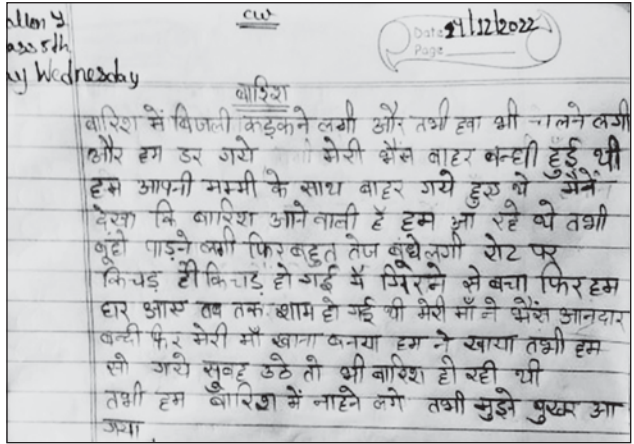 cw
Date 14/12/2022
Page
ass 5th
ay Wednesday
बारिश
बारिश में बिजली कड़कने लगी और तभी हवा भी चलने लगी
और हम डर गये मेरी भैंस बाहर बन्धी हुई थी
हम आपनी मम्मी के साथ बाहर गये हुए थे मैंने
देखा कि बारिश आने वाली है हम आ रहे थे तभी
बूहो पाड़ने लगी फिर बहुत तेज बुंधे लगी रोट पर
किचड़ ही किचड़ हो गई मैं गिरने से बचा फिर हम
घार आए तब तक शाम हो गई थी मेरी माँ ने भैंस आनदार
बन्दी फिर मेरी माँ खाना बनया हम ने खाया तभी हम
सो गये सुवह उठे तो भी बारिश हो रही थी
तभी हम बारिश में नाहने लगे तभी मुझे बुखर आ
गया